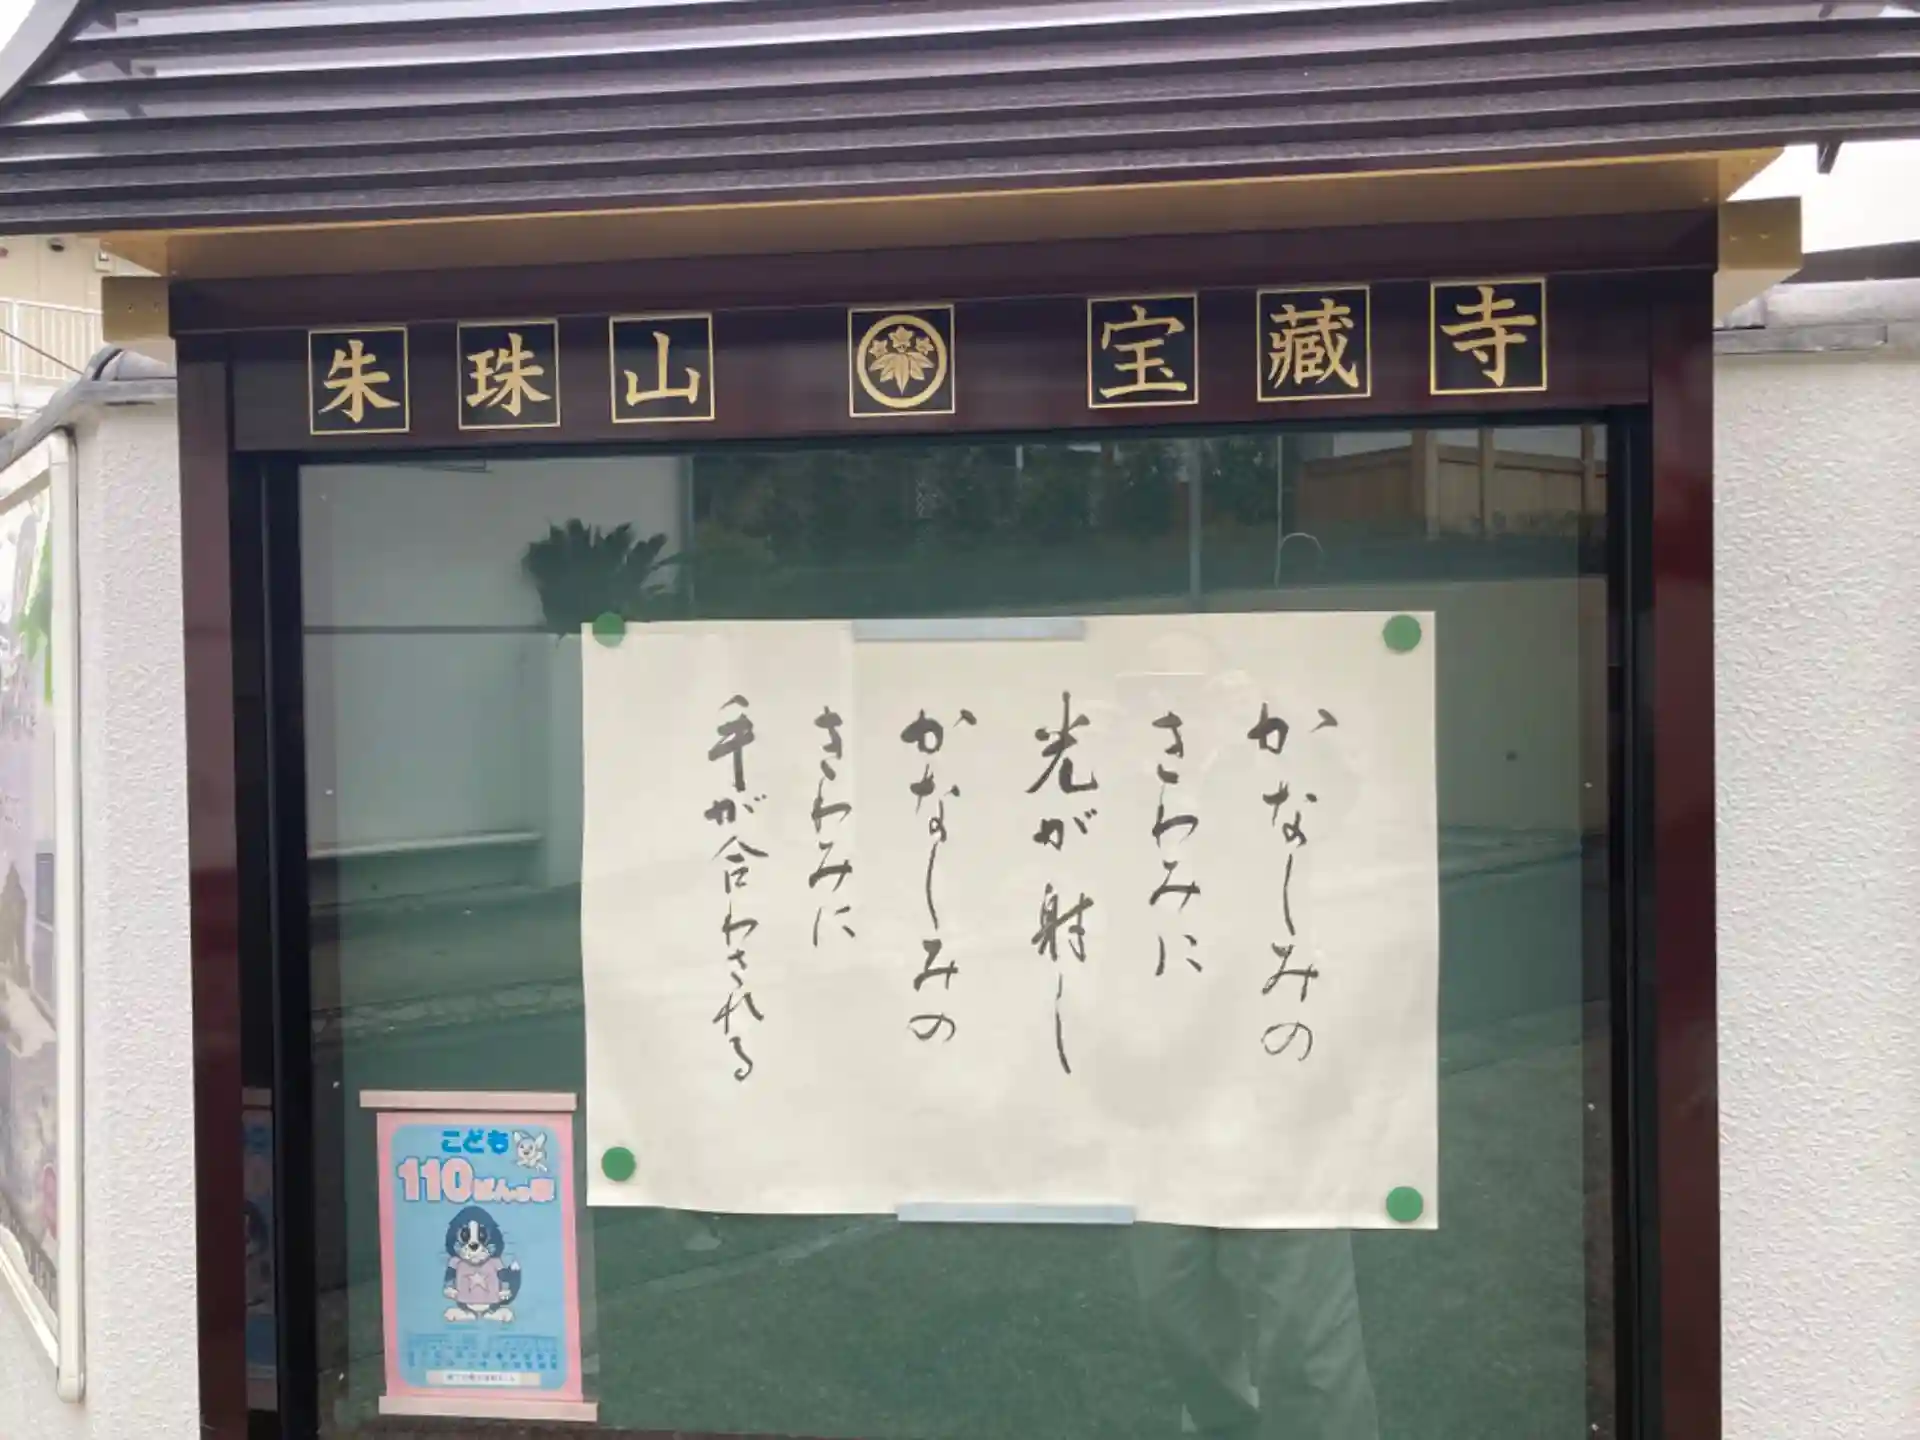 朱珠山 宝蔵寺
かなしみの
きわみに
光が射し
かなしみの
きわみに
手が合わされる
こども
110ばんの家